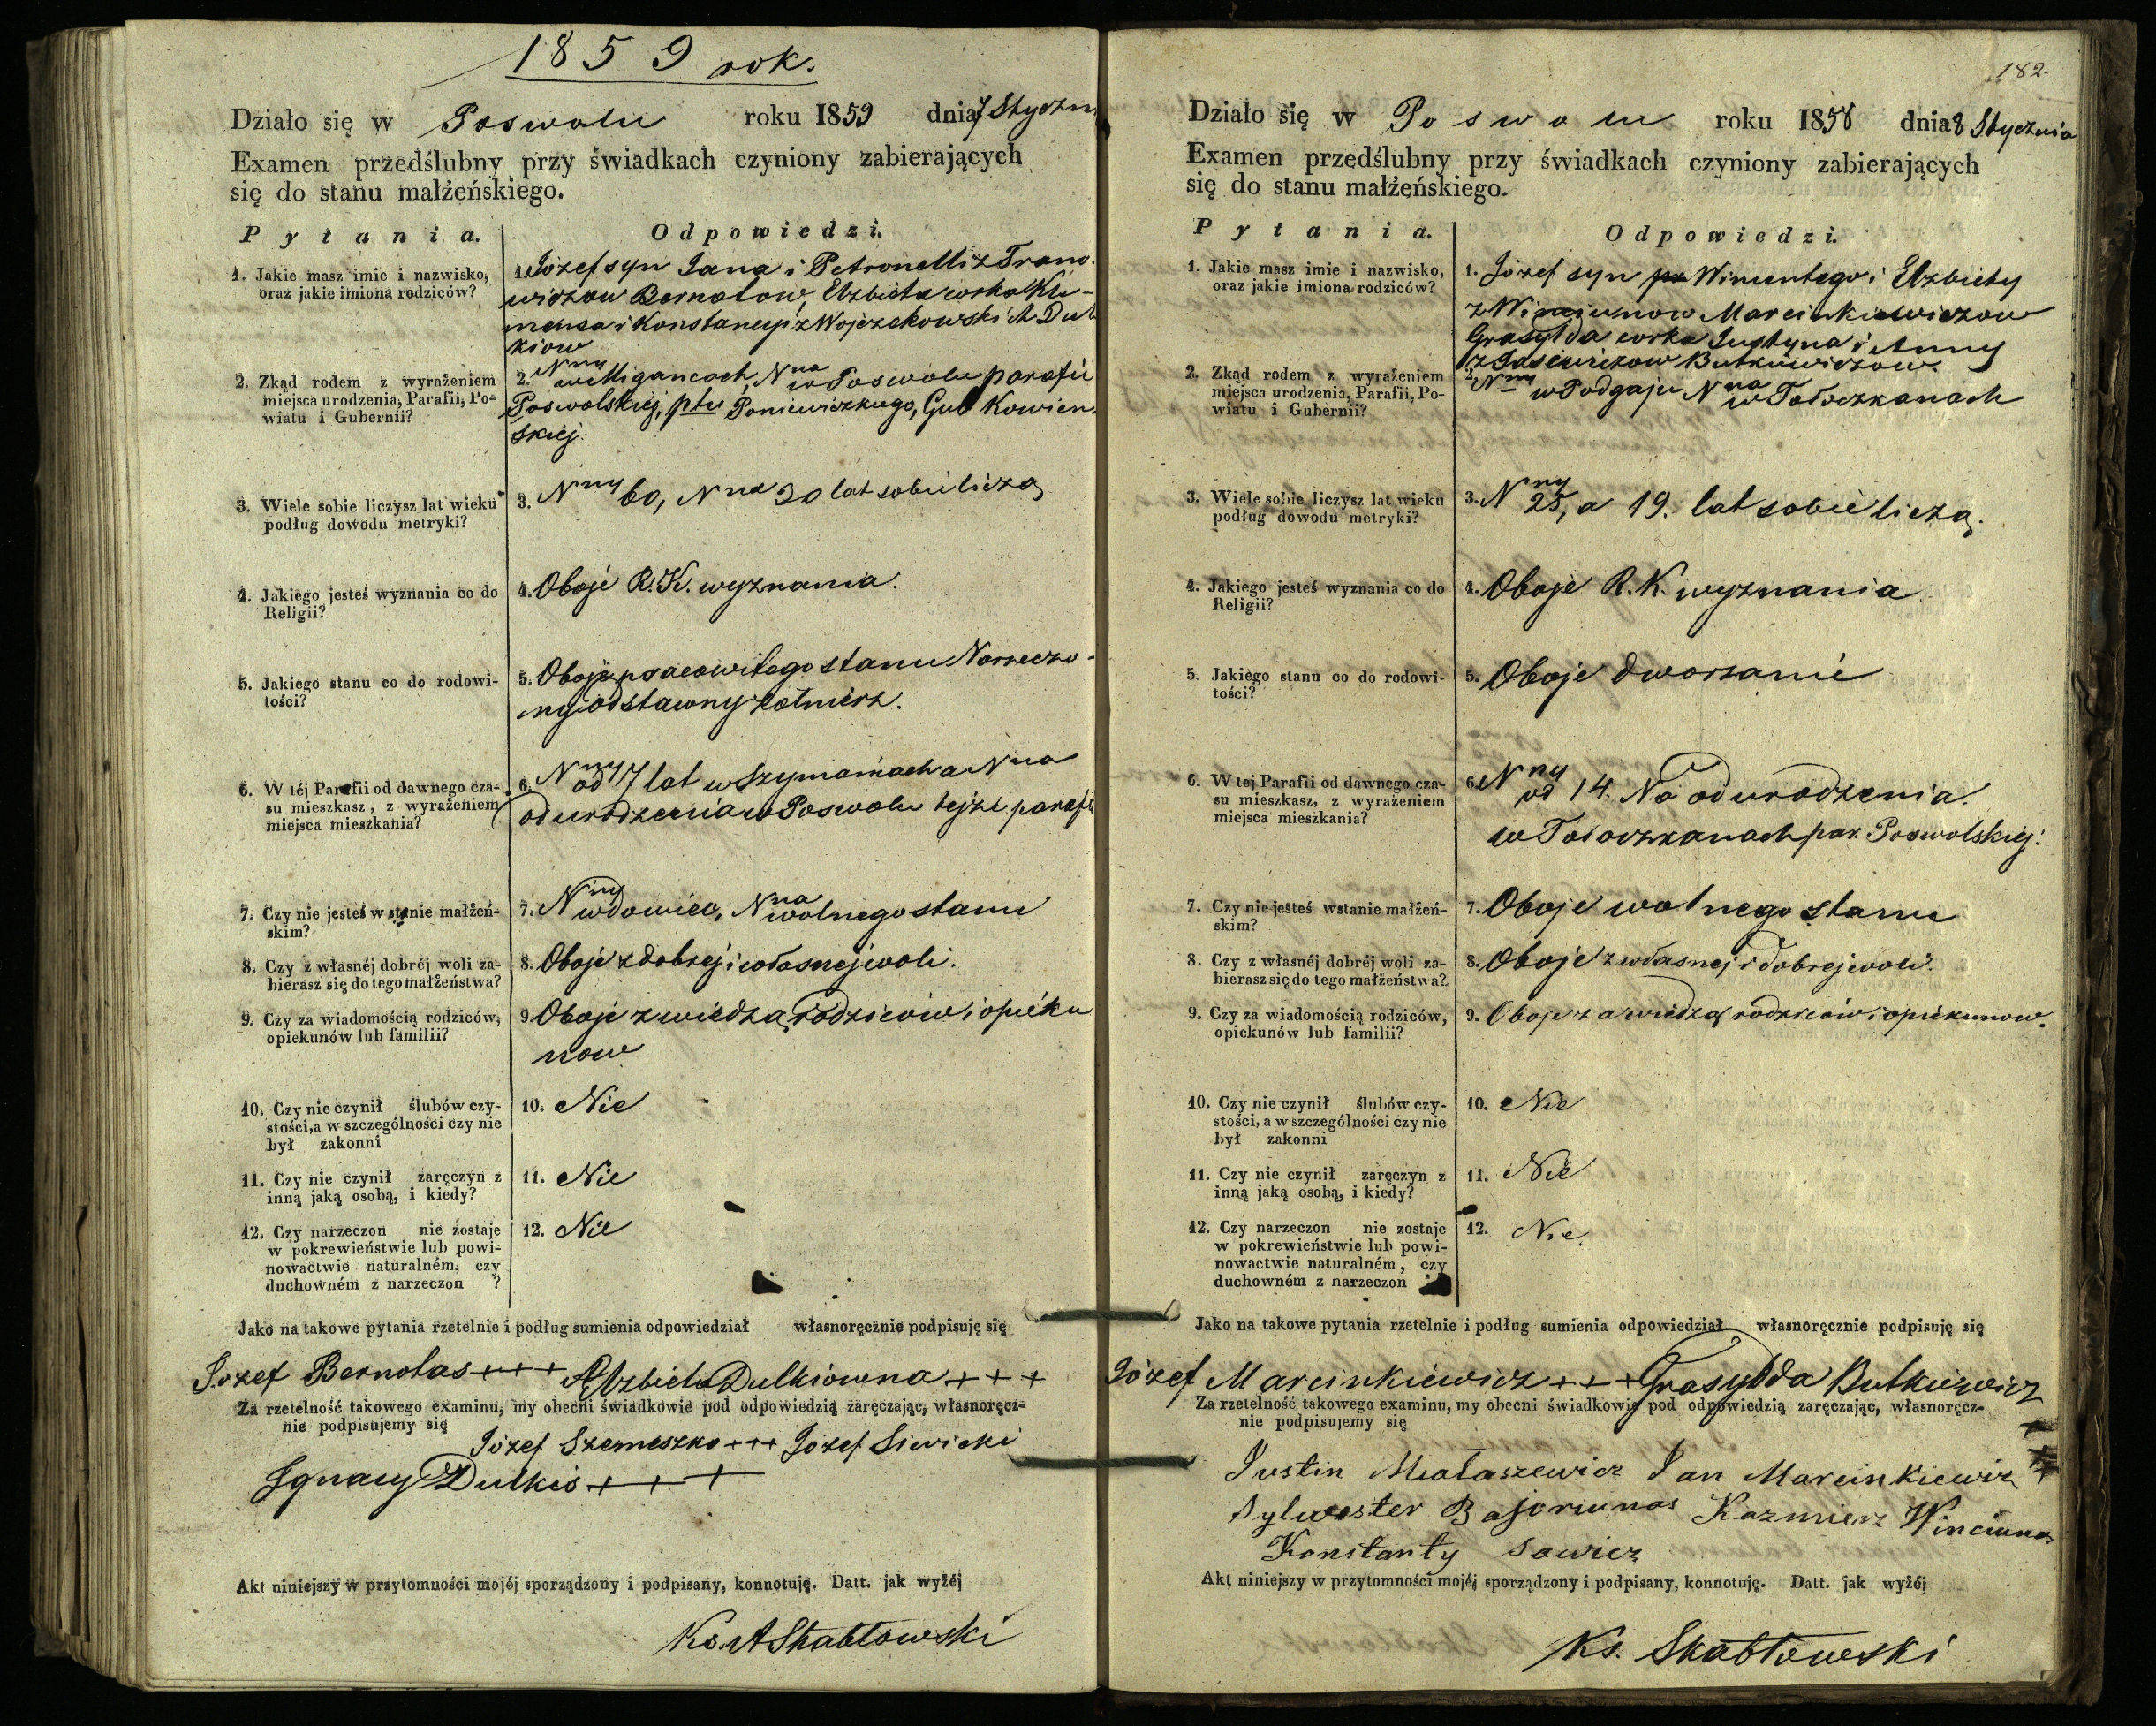 1859 rok.
Działo się w Poswolu roku 1859 dnia 7 Styczn
Examen przedślubny przy świadkach czyniony zabierających
się do stanu małżeńskiego.
Pytania. Odpowiedzi.
1. Jakie masz imie i nazwisko,
oraz jakie imiona rodziców?
1. Józef syn Jana i Petronelli z Frano
wiczow Bernatow, Elzbieta corka Kli-
mensa i Konstancyi z Wojczekowskich Dul
kiow
2. Zkąd rodem z wyrażeniem
miejsca urodzenia, Parafii, Po-
wiatu i Gubernii?
2. Nny w Migancach, Nna w Poswolu parafii
Poswolskiej, ptu Poniewiezkiego, Gub Kowien
skiej.
3. Wiele sobie liczysz lat wieku
podług dowodu metryki?
3. Nny 60, Nna 30 lat sobie liczą
4. Jakiego jesteś wyznania co do
Religii?
4. Oboje R. K. wyznania.
5. Jakiego stanu co do rodowi-
tości?
5. Oboje pracowitego stanu Narzeczo-
ny odstawny żołnierz.
6. W téj Parafii od dawnego cza-
su mieszkasz, z wyrażeniem
miejsca mieszkania?
6. Nny od 17 lat w Szymaniach a Nna
od urodzenia w Poswolu tejże parafii
7. Czy nie jesteś w stanie małżeń-
skim?
7. Nny wdowiec, Nna wolnego stanu
8. Czy z własnéj dobréj woli za-
bierasz się do tego małżeństwa?
8. Oboje z dobrej i własnej woli.
9. Czy za wiadomością rodziców,
opiekunów lub familii?
9. Oboje z wiedzą rodziców i opieku
now
10. Czy nie czynił ślubów czy-
stości, a w szczególności czy nie
był zakonni
10. Nie
11. Czy nie czynił zaręczyn z
inną jaką osobą, i kiedy?
11. Nie
12. Czy narzeczon nie zostaje
w pokrewieństwie lub powi-
nowactwie naturalném, czy
duchowném z narzeczon ?
12. Nie
Jako na takowe pytania rzetelnie i podług sumienia odpowiedział własnoręcznie podpisuję się
Jozef Bernotas +++ Elzbieta Dulkiowna +++
Za rzetelność takowego examinu, my obecni świadkowie pod odpowiedzią zaręczając, własnoręcz-
nie podpisujemy się
Józef Szemeszko +++ Jozef Siwicki
Ignacy Dulkis +++
Akt niniejszy w przytomności mojéj sporządzony i podpisany, konnotuję. Datt. jak wyżéj
Ks. A Skabłowski
182.
Działo się w Poswolu roku 1858 dnia 8 Stycznia
Examen przedślubny przy świadkach czyniony zabierających
się do stanu małżeńskiego.
Pytania. Odpowiedzi.
1. Jakie masz imie i nazwisko,
oraz jakie imiona rodziców?
1. Józef syn Wincentego i Elzbiety
z Winciunow Marcinkiewiczow
Grasylda corka Justyna i Anny
Butkiewiczow.
2. Zkąd rodem z wyrażeniem
miejsca urodzenia, Parafii, Po-
wiatu i Gubernii?
2. Nny w Podgaju Nna w Tołoczkanach
3. Wiele sobie liczysz lat wieku
podług dowodu metryki?
3. Nny 25, a 19. lat sobie liczą.
4. Jakiego jesteś wyznania co do
Religii?
4. Oboje R. K. wyznania
5. Jakiego stanu co do rodowi-
tości?
5. Oboje dworzanie
6. W tej Parafii od dawnego cza-
su mieszkasz, z wyrażeniem
miejsca mieszkania?
6. Nny od 14. Na od urodzenia.
w Tołoczkanach par. Poswolskiej.
7. Czy nie jesteś w stanie małżeń-
skim?
7. Oboje wolnego stanu
8. Czy z własnéj dobréj woli za-
bierasz się do tego małżeństwa?
8. Oboje z własnej i dobrej woli.
9. Czy za wiadomością rodziców,
opiekunów lub familii?
9. Oboje za wiedzą rodziców i opiekunow.
10. Czy nie czynił ślubów czy-
stości, a w szczególności czy nie
był zakonni
10. Nie
11. Czy nie czynił zaręczyn z
inną jaką osobą, i kiedy?
11. Nie
12. Czy narzeczon nie zostaje
w pokrewieństwie lub powi-
nowactwie naturalném, czy
duchowném z narzeczon
12. Nie.
Jako na takowe pytania rzetelnie i podług sumienia odpowiedział własnoręcznie podpisuję się
Józef Marcinkiewicz +++ Grasylda Butkiewicz
+++
Za rzetelność takowego examinu, my obecni świadkowie pod odpowiedzią zaręczając, własnoręcz-
nie podpisujemy się
Justin Małaszewicz Jan Marcinkiewicz
Sylwester Bajoriunas Kazmierz Winciunas
Konstanty Sawicz
Akt niniejszy w przytomności mojéj sporządzony i podpisany, konnotuję. Datt. jak wyżéj
Ks. Skabłowski